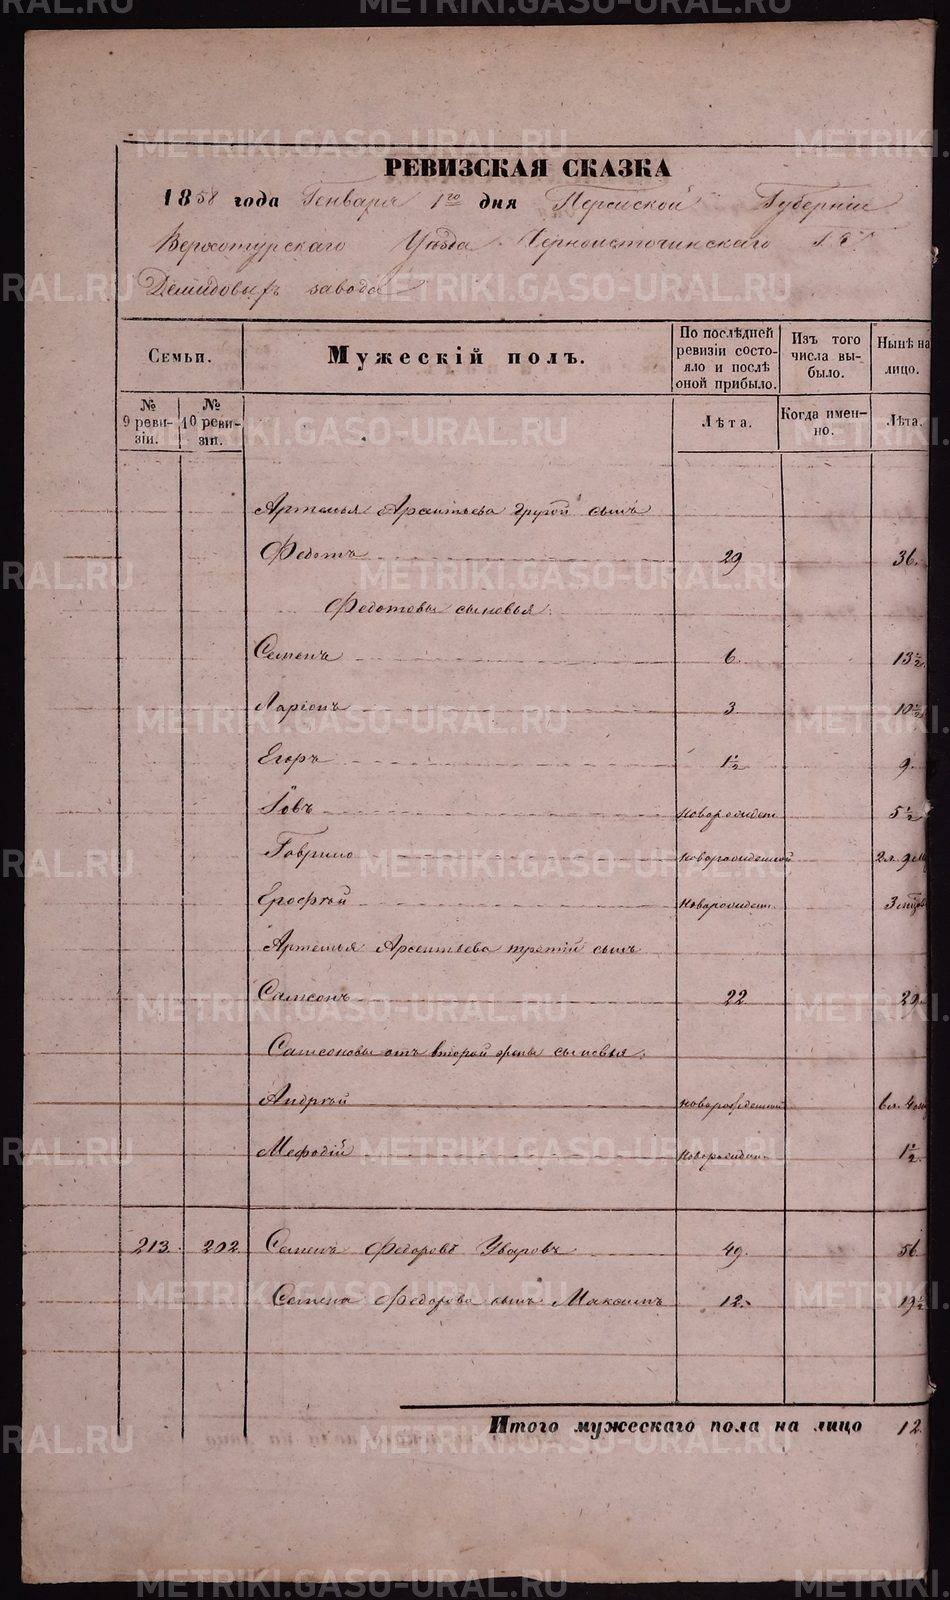 РЕВИЗСКАЯ СКАЗКА
1858 года Генваря 1го дня Пермской Губерніи
Верхотурскаго Уѣзда Черноисточинскаго Г. Г.
Демидовыхъ завода
Семьи.
Мужескій полъ.
По послѣдней ревизіи состояло и послѣ оной прибыло.
Изъ того числа выбыло.
Нынѣ на лицо.
№ 9 ревизіи.
№ 10 ревизіи.
Лѣта.
Когда именно.
Лѣта.
Артемья Арсентьева другой сынъ
Федотъ 29 36.
Федотовы сыновья:
Семенъ 6. 13½
Ларіонъ 3. 10½
Егоръ 1½ 9.
Іовъ новорожден 5½
Гаврило новорожденной 2л. 9м
Ерофѣй новорожден. 3
Артемья Арсентьева третій сынъ
Самсонъ 22 29.
Самсоновы отъ второй жены сыновья:
Андрѣй новорожденной 6л. 4м
Мефодій новорожден. 1½
213. 202 Семенъ Федоровъ Уваровъ 49. 56.
Семена Федорова сынъ Максимъ 12. 19½
Итого мужескаго пола на лицо 12.
METRIKI.GASO-URAL.RU